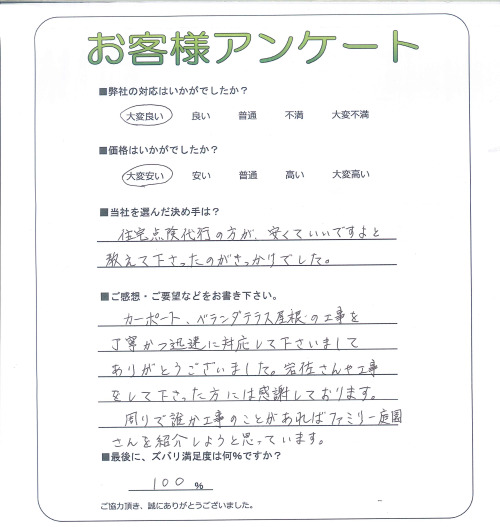 お客様アンケート
■弊社の対応はいかがでしたか？
大変良い 良い 普通 不満 大変不満
■価格はいかがでしたか？
大変安い 安い 普通 高い 大変高い
■当社を選んだ決め手は？
住宅点険代行の方が、安くていいですよと
教えて下さったのがきっかけでした。
■ご感想・ご要望などをお書き下さい。
カーポート、ベランダテラス屋根の工事を
丁寧かつ迅速に対応して下さいまして
ありがとうございました。岩佐さんや工事
をして下さった方には感謝しております。
周りで誰か工事のことがあればファミリー庭園
さんを紹介しようと思っています。
■最後に、ズバリ満足度は何%ですか？
100 %
ご協力頂き、誠にありがとうございました。